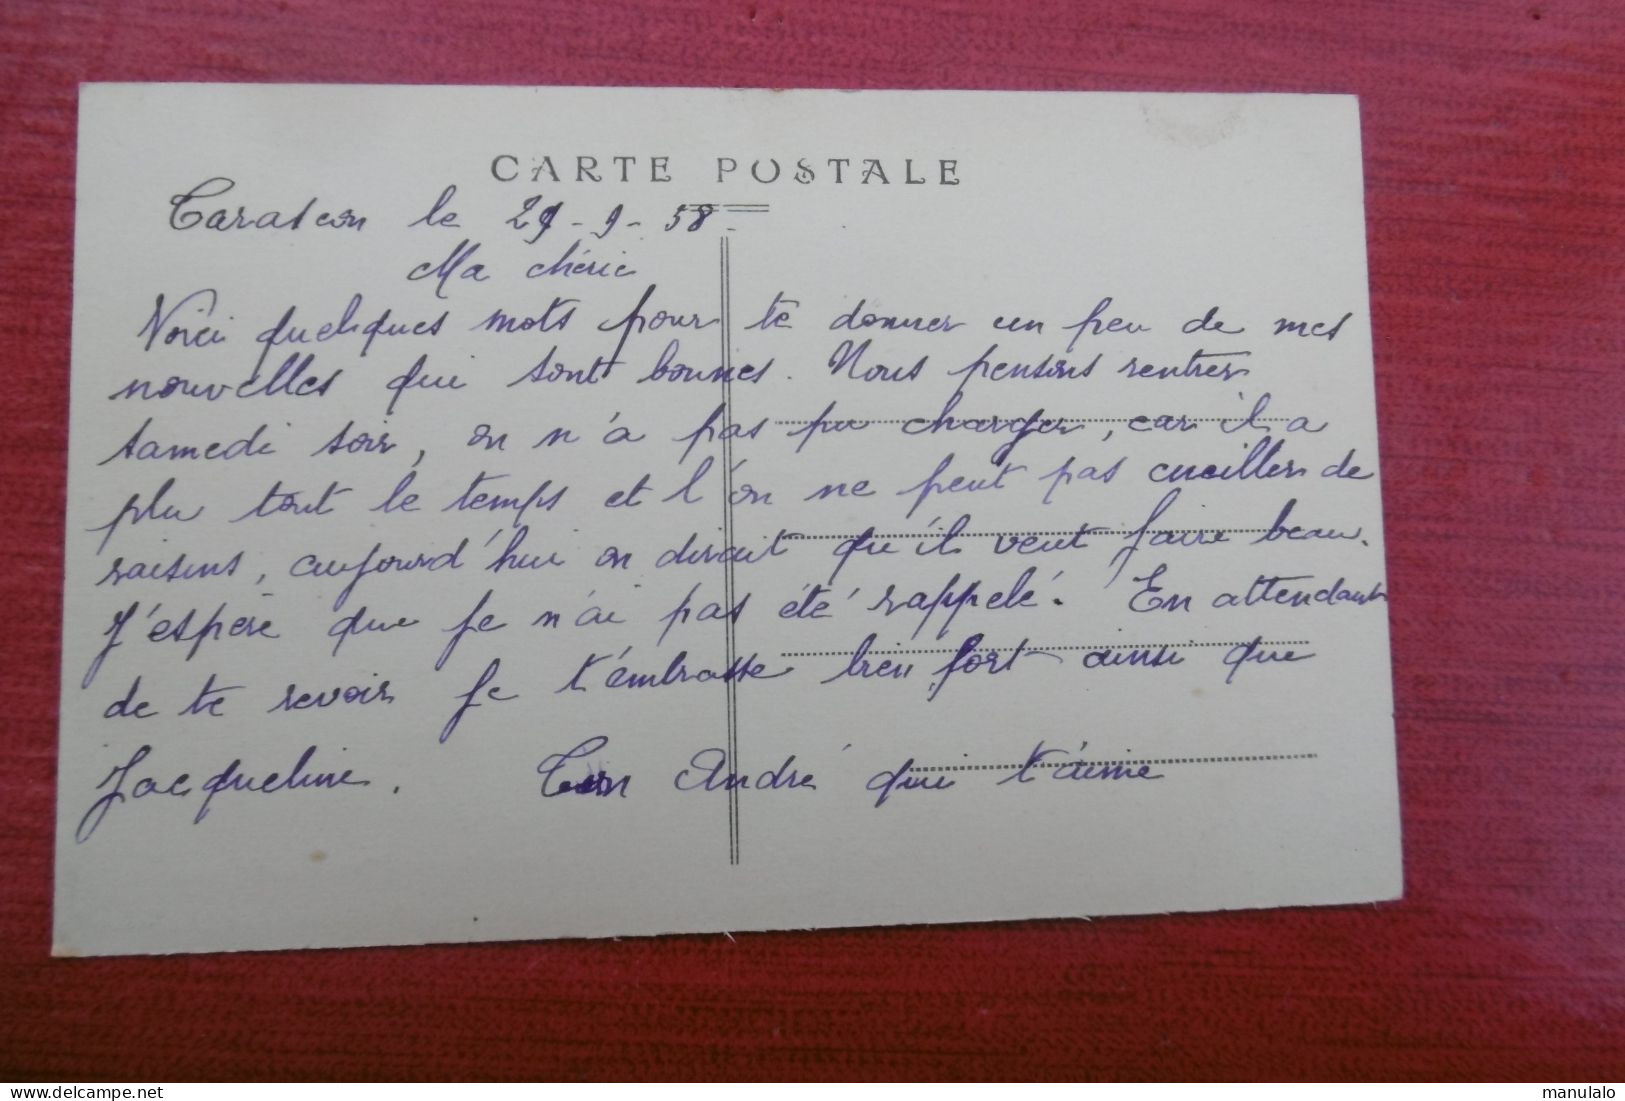 CARTE POSTALE
Tarascon le 29-9-58
Ma chérie
Voici quelques mots pour te donner un peu de mes
nouvelles qui sont bonnes. Nous pensons rentrer
samedi soir, on n'a pas pu charger, car il a
plu tout le temps et l'on ne peut pas cueiller de
raisins, aujourd'hui on dirait qu'il veut faire beau.
J'espère que je n'ai pas été rappelé. En attendant
de te revoir je t'embrasse bien fort ainsi que
Jacqueline. Ton André qui t'aime
manulalo